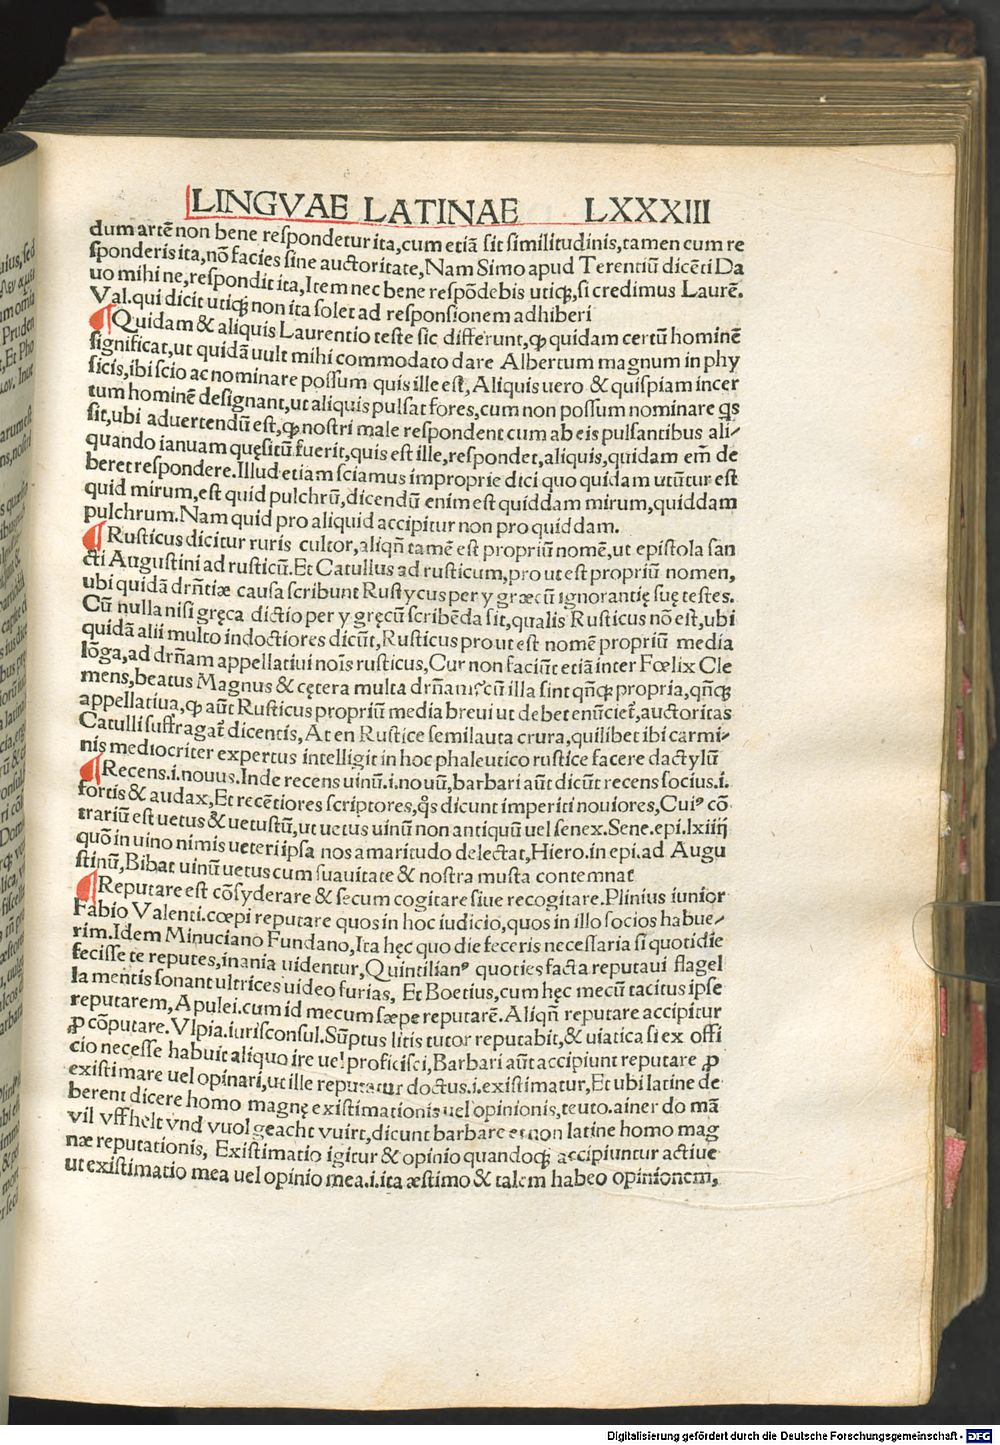 LINGVAE LATINAE LXXXIII
dum artē non bene respondetur ita, cum etiā sit similitudinis, tamen cum re
sponderis ita, nō facies sine auctoritate, Nam Simo apud Terentiū dicēti Da
uo mihi ne, respondit ita, Item nec bene respōdebis utiqꝫ, si credimus Laurē.
Val. qui dicit utiqꝫ non ita solet ad responsionem adhiberi
¶ Quidam & aliquis Laurentio teste sic differunt, ꝙ quidam certū hominē
significat, ut quidā uult mihi commodato dare Albertum magnum in phy
sicis, ibi scio ac nominare possum quis ille est, Aliquis uero & quispiam incer
tum hominē designant, ut aliquis pulsat fores, cum non possum nominare q̄s
sit, ubi aduertendū est, ꝙ nostri male respondent cum ab eis pulsantibus ali-
quando ianuam quęsitū fuerit, quis est ille, respondet, aliquis, quidam em̄ de
beret respondere. Illud etiam sciamus improprie dici quo quidam utūtur est
quid mirum, est quid pulchrū, dicendū enim est quiddam mirum, quiddam
pulchrum. Nam quid pro aliquid accipitur non pro quiddam.
¶ Rusticus dicitur ruris cultor, aliqn̄ tamē est propriū nomē, ut epistola san
cti Augustini ad rusticū. Et Catullus ad rusticum, pro ut est propriū nomen,
ubi quidā drn̄tiæ causa scribunt Rustycus per y græcū ignorantię suę testes.
Cū nulla nisi gręca dictio per y gręcū scribēda sit, qualis Rusticus nō est, ubi
quidā alii multo indoctiores dicūt, Rusticus pro ut est nomē propriū media
lōga, ad drn̄am appellatiui nois̄ rusticus, Cur non faciūt etiā inter Fœlix Cle
mens, beatus Magnus & cętera multa drn̄am, cū illa sint qn̄qꝫ propria, qn̄qꝫ
appellatiua, ꝙ aūt Rusticus propriū media breui ut debet enūciet̄, auctoritas
Catulli suffragat̄ dicentis, At en Rustice semilauta crura, quilibet ibi carmi-
nis mediocriter expertus intelligit in hoc phaleutico rustice facere dactylū
¶ Recens .i. nouus. Inde recens uinū .i. nouū, barbari aūt dicūt recens socius .i.
fortis & audax, Et recētiores scriptores, q̄s dicunt imperiti nouiores, Cuiꝰ cō
trariū est uetus & uetustū, ut uetus uinū non antiquū uel senex. Sene. epi. lxiiij
quō in uino nimis ueteri ipsa nos amaritudo delectat, Hiero. in epi. ad Augu
stinū, Bibat uinū uetus cum suauitate & nostra musta contemnat
¶ Reputare est cōsyderare & secum cogitare siue recogitare. Plinius iunior
Fabio Valenti. cœpi reputare quos in hoc iudicio, quos in illo socios habue-
rim. Idem Minuciano Fundano, Ita hęc quo die feceris necessaria si quotidie
fecisse te reputes, inania uidentur, Quintilianꝰ quoties facta reputaui flagel
la mentis sonant ultrices uideo furias, Et Boetius, cum hęc mecū tacitus ipse
reputarem, Apulei. cum id mecum sæpe reputarē. Aliqn̄ reputare accipitur
ꝓ cōputare. Vlpia. iurisconsul. Sūptus litis tutor reputabit, & uiatica si ex offi
cio necesse habuit aliquo ire uel proficisci, Barbari aūt accipiunt reputare ꝓ
existimare uel opinari, ut ille reputatur doctus .i. existimatur, Et ubi latine de
berent dicere homo magnę existimationis uel opinionis, teuto. ainer do mā
vil vff helt vnd vuol geacht vuirt, dicunt barbare et non latine homo mag
næ reputationis, Existimatio igitur & opinio quandoqꝫ accipiuntur actiue
ut existimatio mea uel opinio mea .i. ita æstimo & talem habeo opinionem,
Digitalisierung gefördert durch die Deutsche Forschungsgemeinschaft - DFG